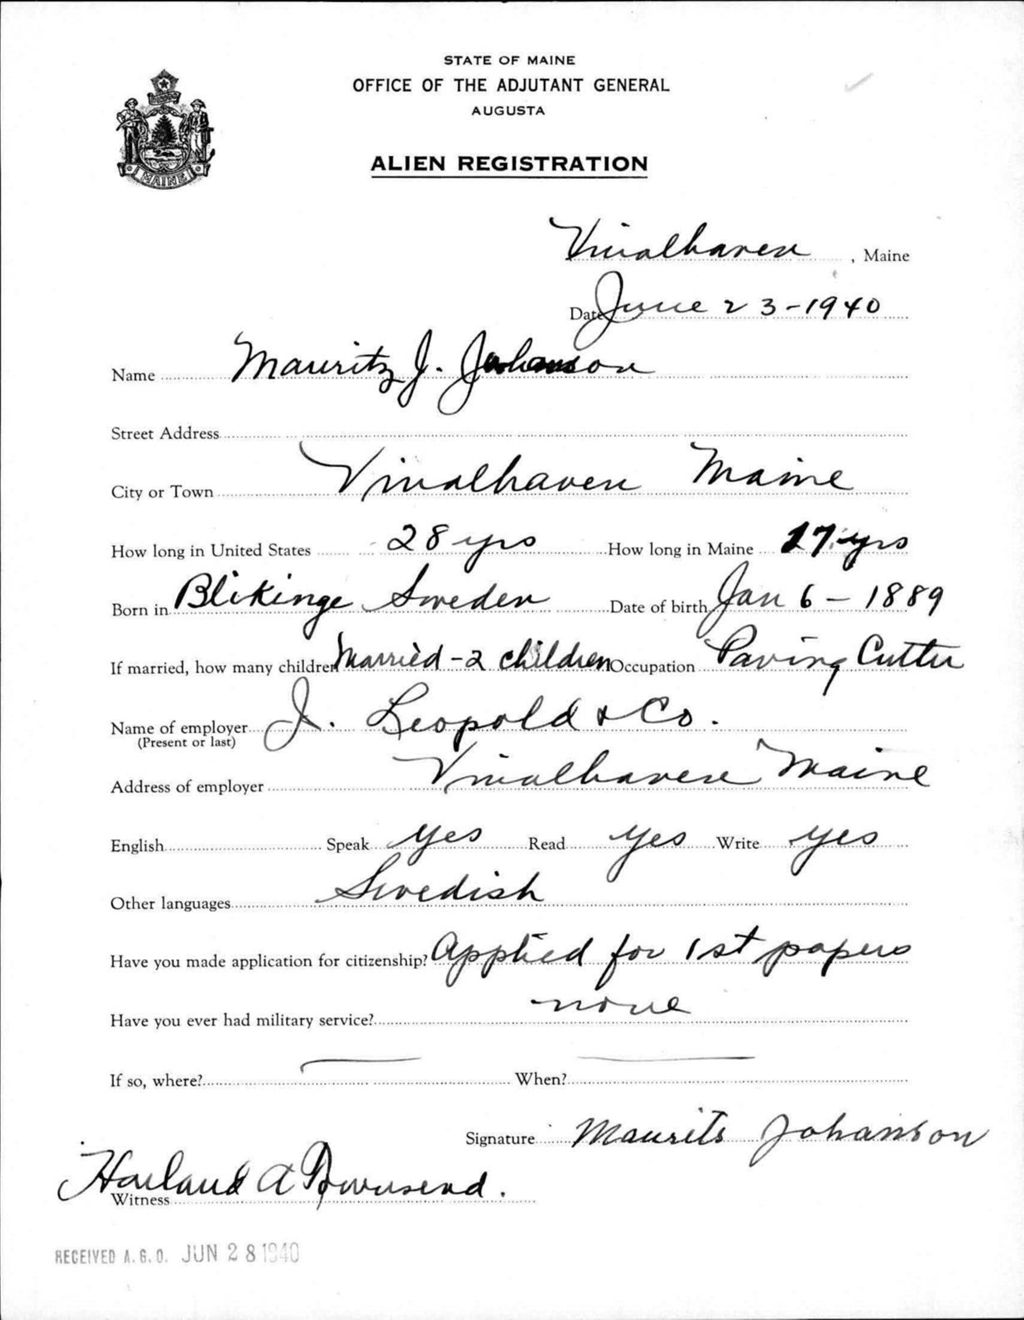 STATE OF MAINE
OFFICE OF THE ADJUTANT GENERAL
AUGUSTA
ALIEN REGISTRATION
MAINE
Vinalhaven, Maine
Date June 23-1940
Name Mauritz J. Johanson
Street Address
City or Town Vinalhaven Maine
How long in United States 28 yrs How long in Maine 17 yrs
Born in Blikinge Sweden Date of birth Jan 6 - 1889
If married, how many children Married - 2 children Occupation Paving Cutter
Name of employer J. Leopold & Co.
(Present or last)
Address of employer Vinalhaven Maine
English Speak yes Read yes Write yes
Other languages Swedish
Have you made application for citizenship? Applied for 1st papers
Have you ever had military service? none
If so, where? When?
Signature Maurits Johanson
Harland A Townsend.
Witness
RECEIVED A.G.O. JUN 28 1940